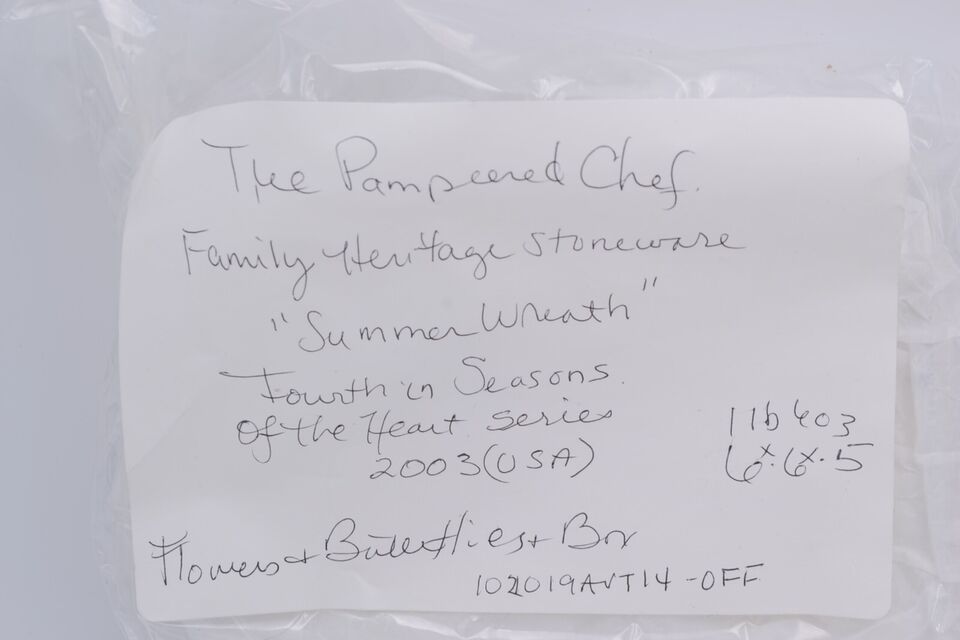 The Pampered Chef.
Family Heritage Stoneware
"Summer Wreath"
Fourth in Seasons
Of the Heart Series
2003 (USA)
1 lb 6 oz
6 x 6 x .5
Flowers + Butterflies + Box
102019AVT14-OFF